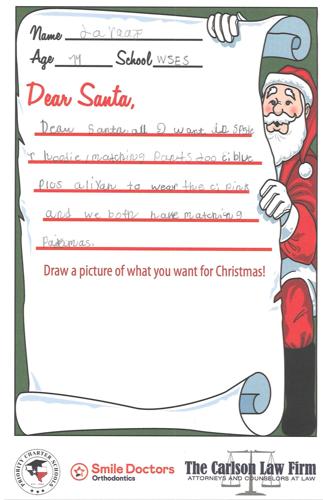 Name
Age 11 School WSES
Dear Santa,
Dear Santa all I want is
hoodie matching Pants too
plus aliyah to wear the
and we both have matching
Pajamas.
Draw a picture of what you want for Christmas!
PRIORITY CHARTER SCHOOLS
Smile Doctors
Orthodontics
The Carlson Law Firm
ATTORNEYS AND COUNSELORS AT LAW